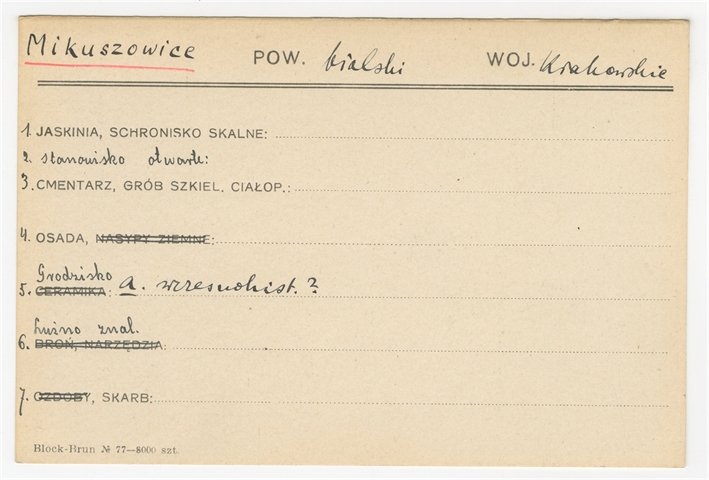 Mikuszowice POW. bialski WOJ. Krakowskie
1. JASKINIA, SCHRONISKO SKALNE:
2. stanowisko otwarte:
3. CMENTARZ, GRÓB SZKIEL. CIAŁOP.:
4. OSADA, NASYPY ZIEMNE:
Grodzisko
5. CERAMIKA: a. wczesnohist. ?
Luźno znal.
6. BROŃ, NARZĘDZIA:
7. OZDOBY, SKARB:
Block-Brun № 77—8000 szt.